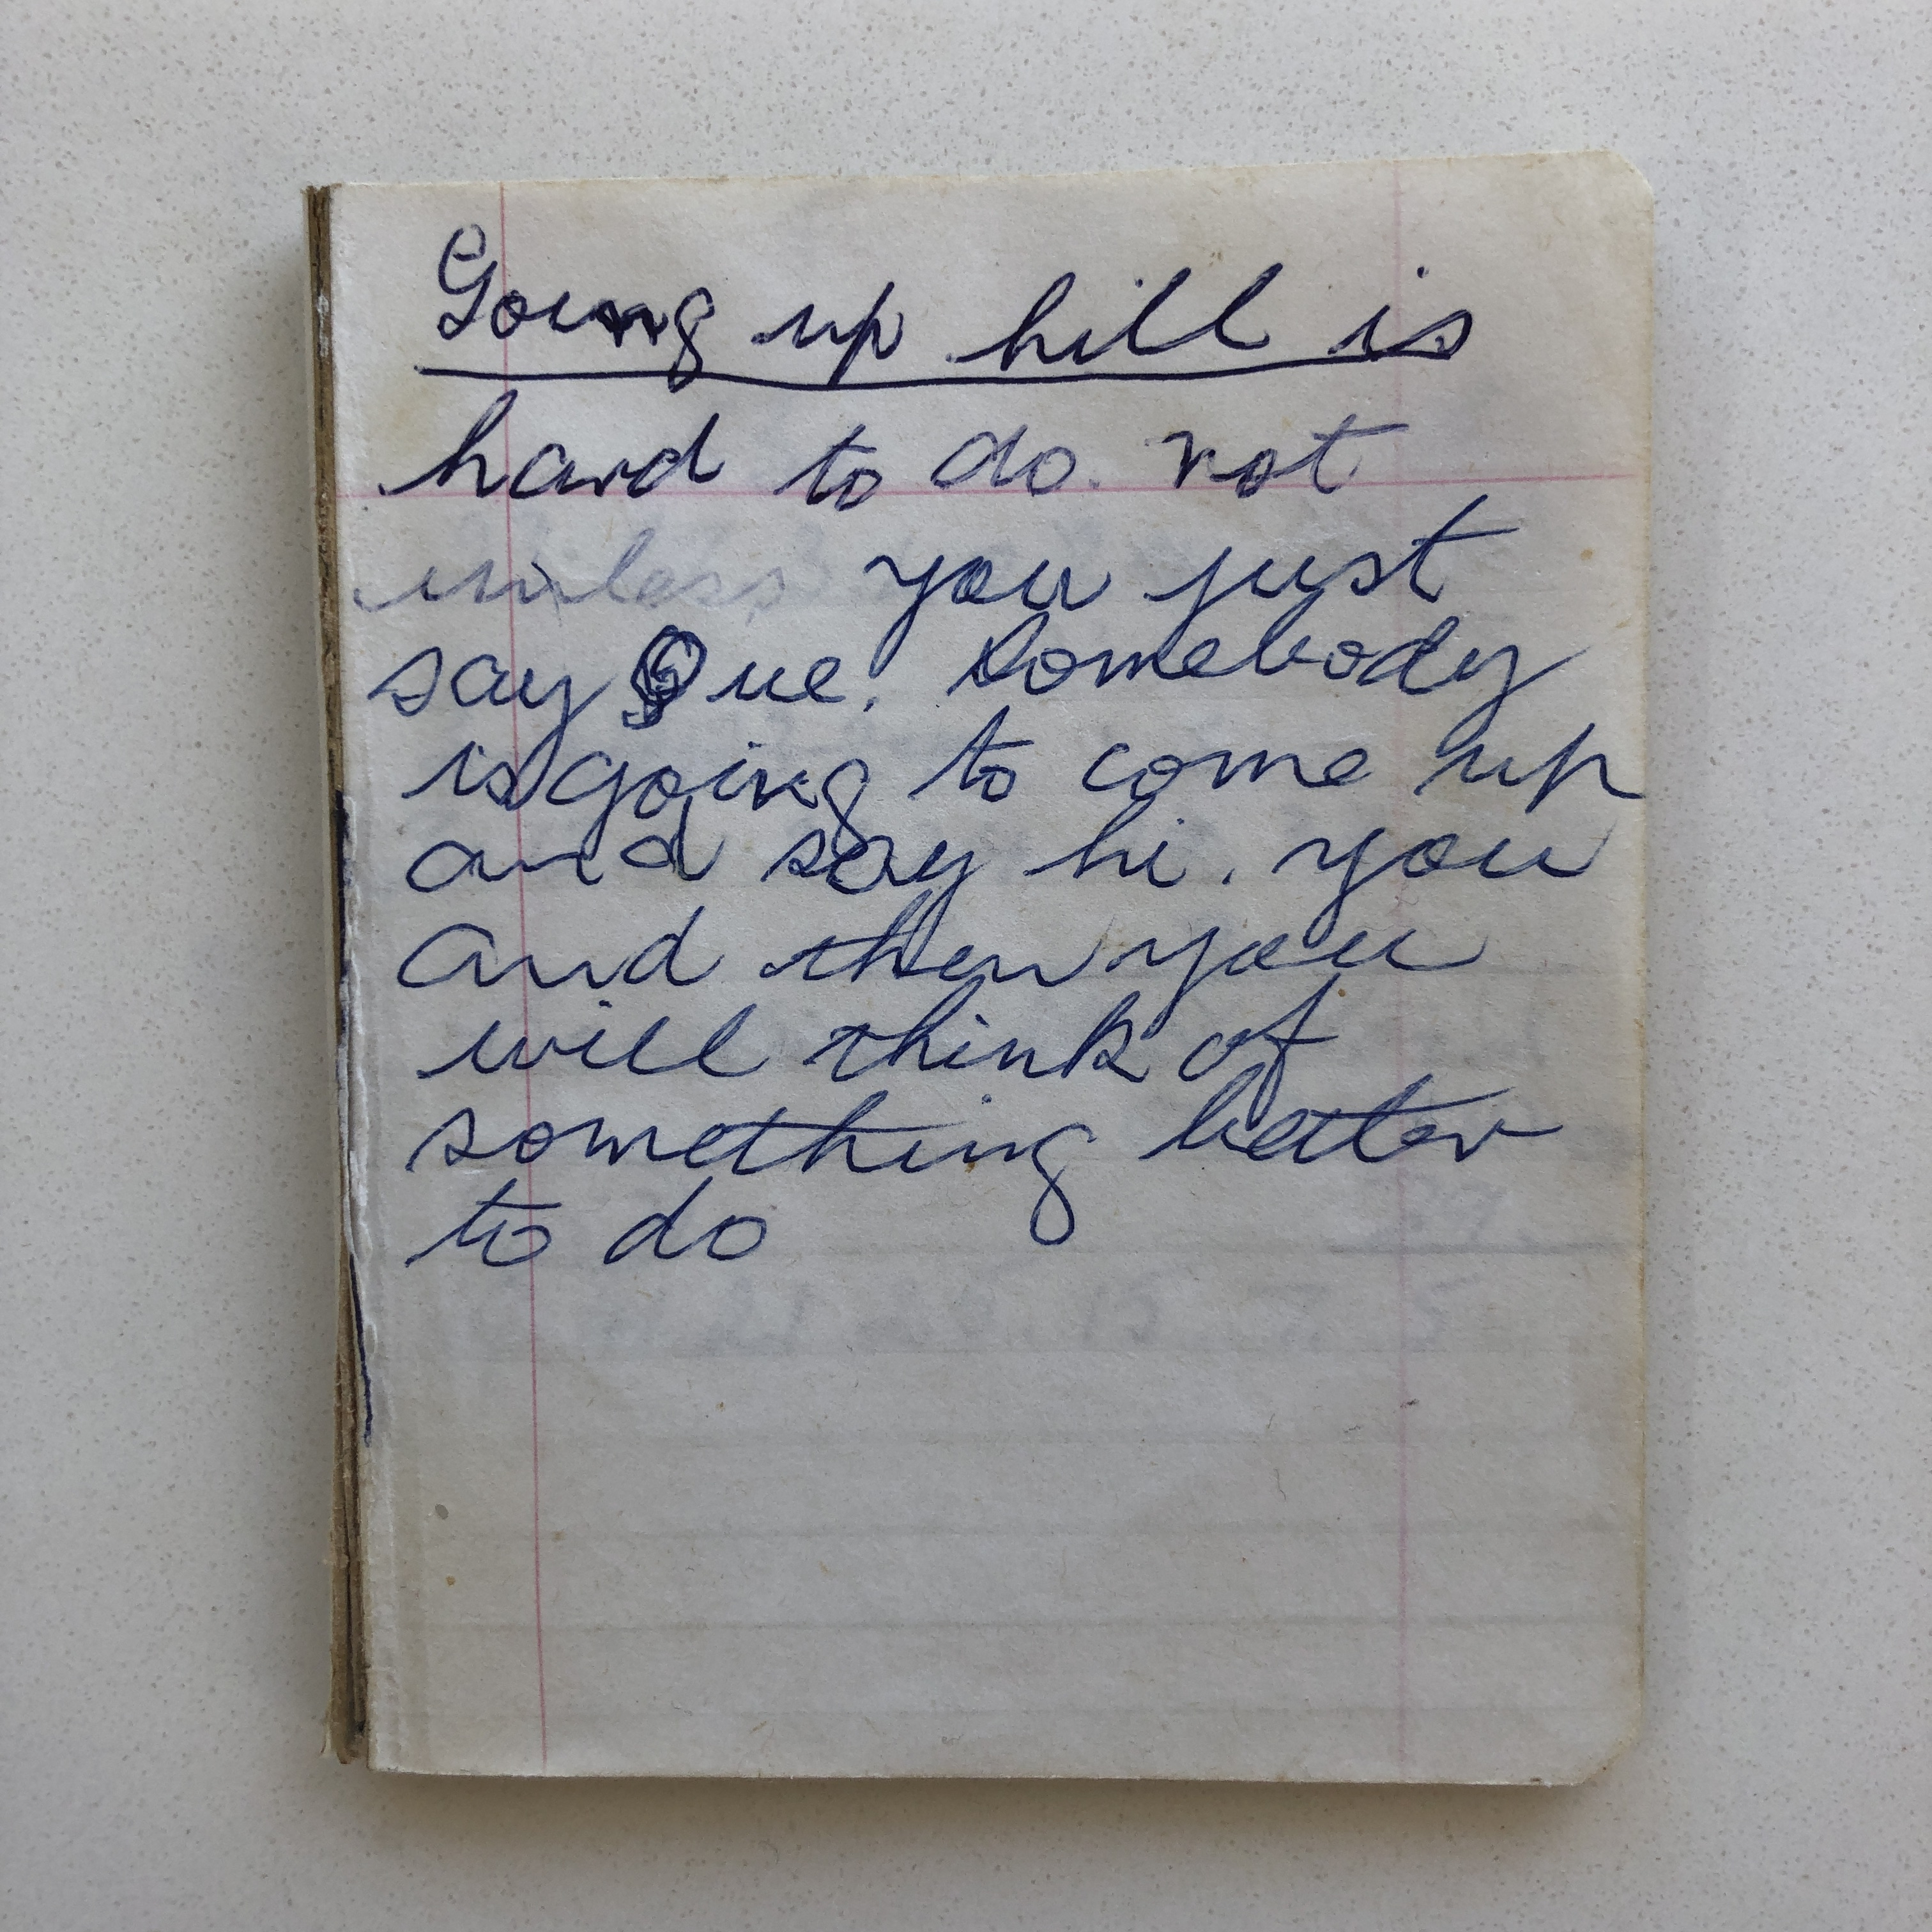 Going up hill is
hard to do. not
unless you just
say Que. Somebody
is going to come up
and say hi. you
and then you
will think of
something better
to do